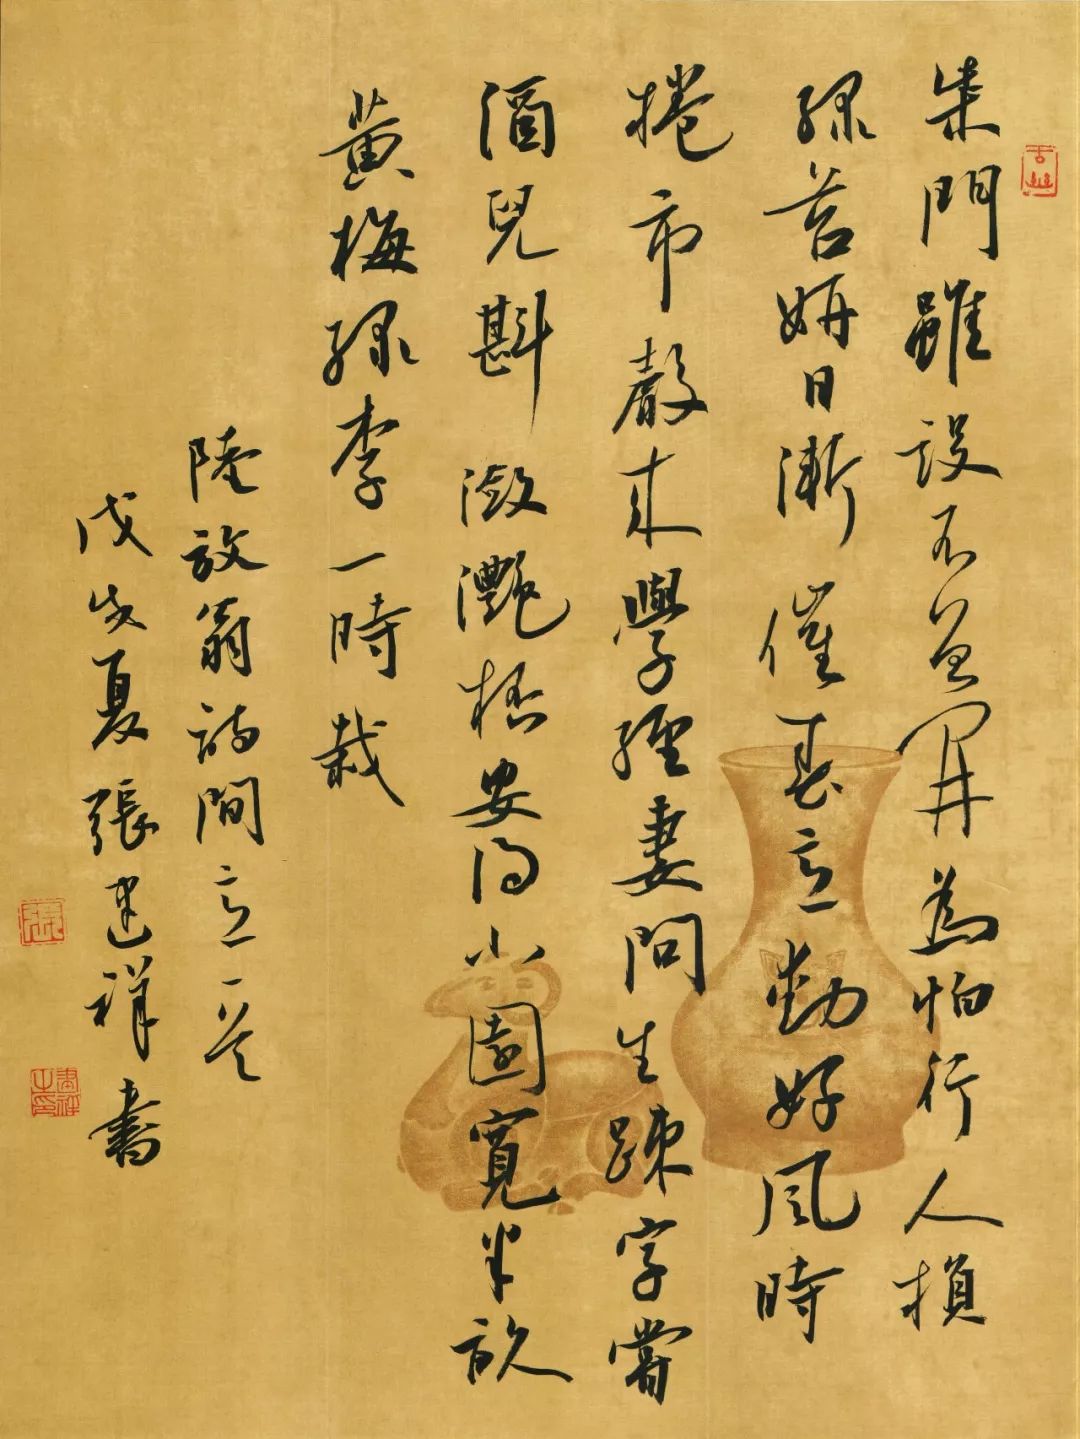 朱門雖設不曾開為怕行人損
綠苔妍日漸催春意動好風時
捲市聲來學經妻問生疎字嘗
酒兒斟瀲灧桮安得小園寬半畝
黃梅綠李一時栽
陸放翁詩閒意一首
戊戌夏張建祥書